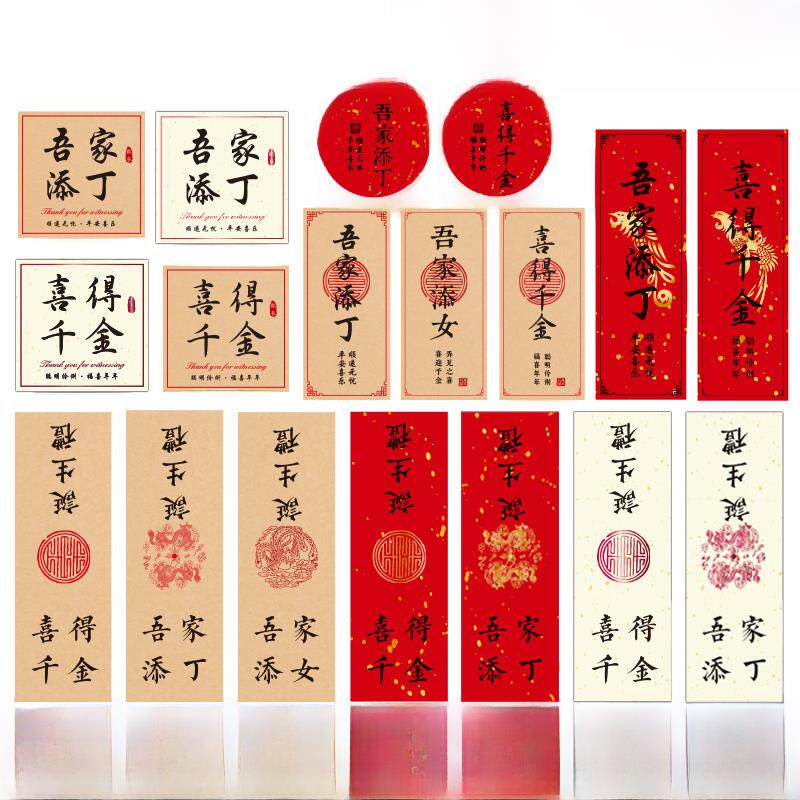 吾家
添丁
Thank you for witnessing
顺遂无忧·平安喜乐
吾家
添丁
Thank you for witnessing
顺遂无忧·平安喜乐
喜得
千金
Thank you for witnessing
聪明伶俐·福喜年年
喜得
千金
Thank you for witnessing
聪明伶俐·福喜年年
吾家添丁
顺遂无忧
平安喜乐
喜得千金
聪明伶俐
福喜年年
吾家添丁
顺遂无忧
平安喜乐
吾家添女
弄瓦之喜
喜迎千金
喜得千金
聪明伶俐
福喜年年
吾家添丁
顺遂无忧
平安喜乐
喜得千金
聪明伶俐
福喜年年
誕生禮
喜得
千金
誕生禮
吾家
添丁
誕生禮
吾家
添女
誕生禮
喜得
千金
誕生禮
吾家
添丁
誕生禮
喜得
千金
誕生禮
吾家
添丁